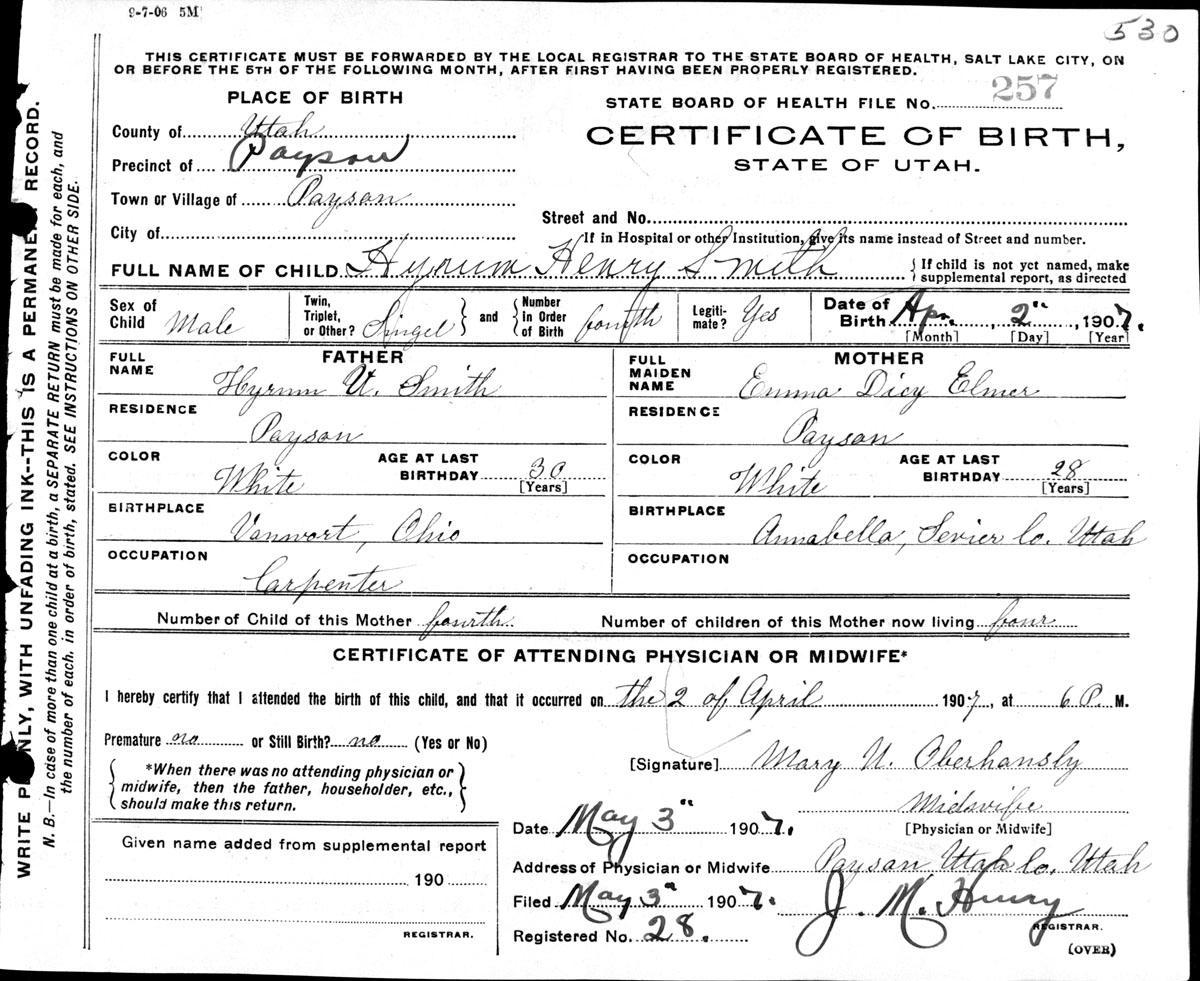 9-7-06 5M
530
THIS CERTIFICATE MUST BE FORWARDED BY THE LOCAL REGISTRAR TO THE STATE BOARD OF HEALTH, SALT LAKE CITY, ON
OR BEFORE THE 5TH OF THE FOLLOWING MONTH, AFTER FIRST HAVING BEEN PROPERLY REGISTERED.
PLACE OF BIRTH
STATE BOARD OF HEALTH FILE No. 257
County of Utah
CERTIFICATE OF BIRTH,
Precinct of Payson
STATE OF UTAH.
Town or Village of Payson
Street and No.
City of
If in Hospital or other Institution, give its name instead of Street and number.
FULL NAME OF CHILD Hyrum Henry Smith
{ If child is not yet named, make
supplemental report, as directed
Sex of Child Male
Twin, Triplet, or Other? Singel } and { Number in Order of Birth fourth
Legiti-mate? Yes
Date of Birth Apr. , 2" , 1907.
[Month] [Day] [Year]
FATHER
FULL NAME Hyrum U. Smith
RESIDENCE
Payson
COLOR White AGE AT LAST BIRTHDAY 30
[Years]
BIRTHPLACE
Vanwort, Ohio
OCCUPATION
Carpenter
MOTHER
FULL MAIDEN NAME Emma Dicy Elmer
RESIDENCE
Payson
COLOR White AGE AT LAST BIRTHDAY 28
[Years]
BIRTHPLACE
Annabella, Sevier Co. Utah
OCCUPATION
Number of Child of this Mother fourth. Number of children of this Mother now living four
CERTIFICATE OF ATTENDING PHYSICIAN OR MIDWIFE*
I hereby certify that I attended the birth of this child, and that it occurred on the 2 of April 1907, at 6 P. M.
Premature no or Still Birth? no (Yes or No)
{ *When there was no attending physician or
midwife, then the father, householder, etc.,
should make this return. }
[Signature] Mary U. Oberhansly
Midwife
[Physician or Midwife]
Date May 3" 1907.
Given name added from supplemental report
190
REGISTRAR.
Address of Physician or Midwife Payson Utah Co. Utah
Filed May 3" 1907. J. M. Henry
REGISTRAR.
Registered No. 28.
(OVER)
WRITE PLAINLY, WITH UNFADING INK--THIS IS A PERMANENT RECORD.
N. B.—In case of more than one child at a birth, a SEPARATE RETURN must be made for each, and
the number of each, in order of birth, stated. SEE INSTRUCTIONS ON OTHER SIDE.